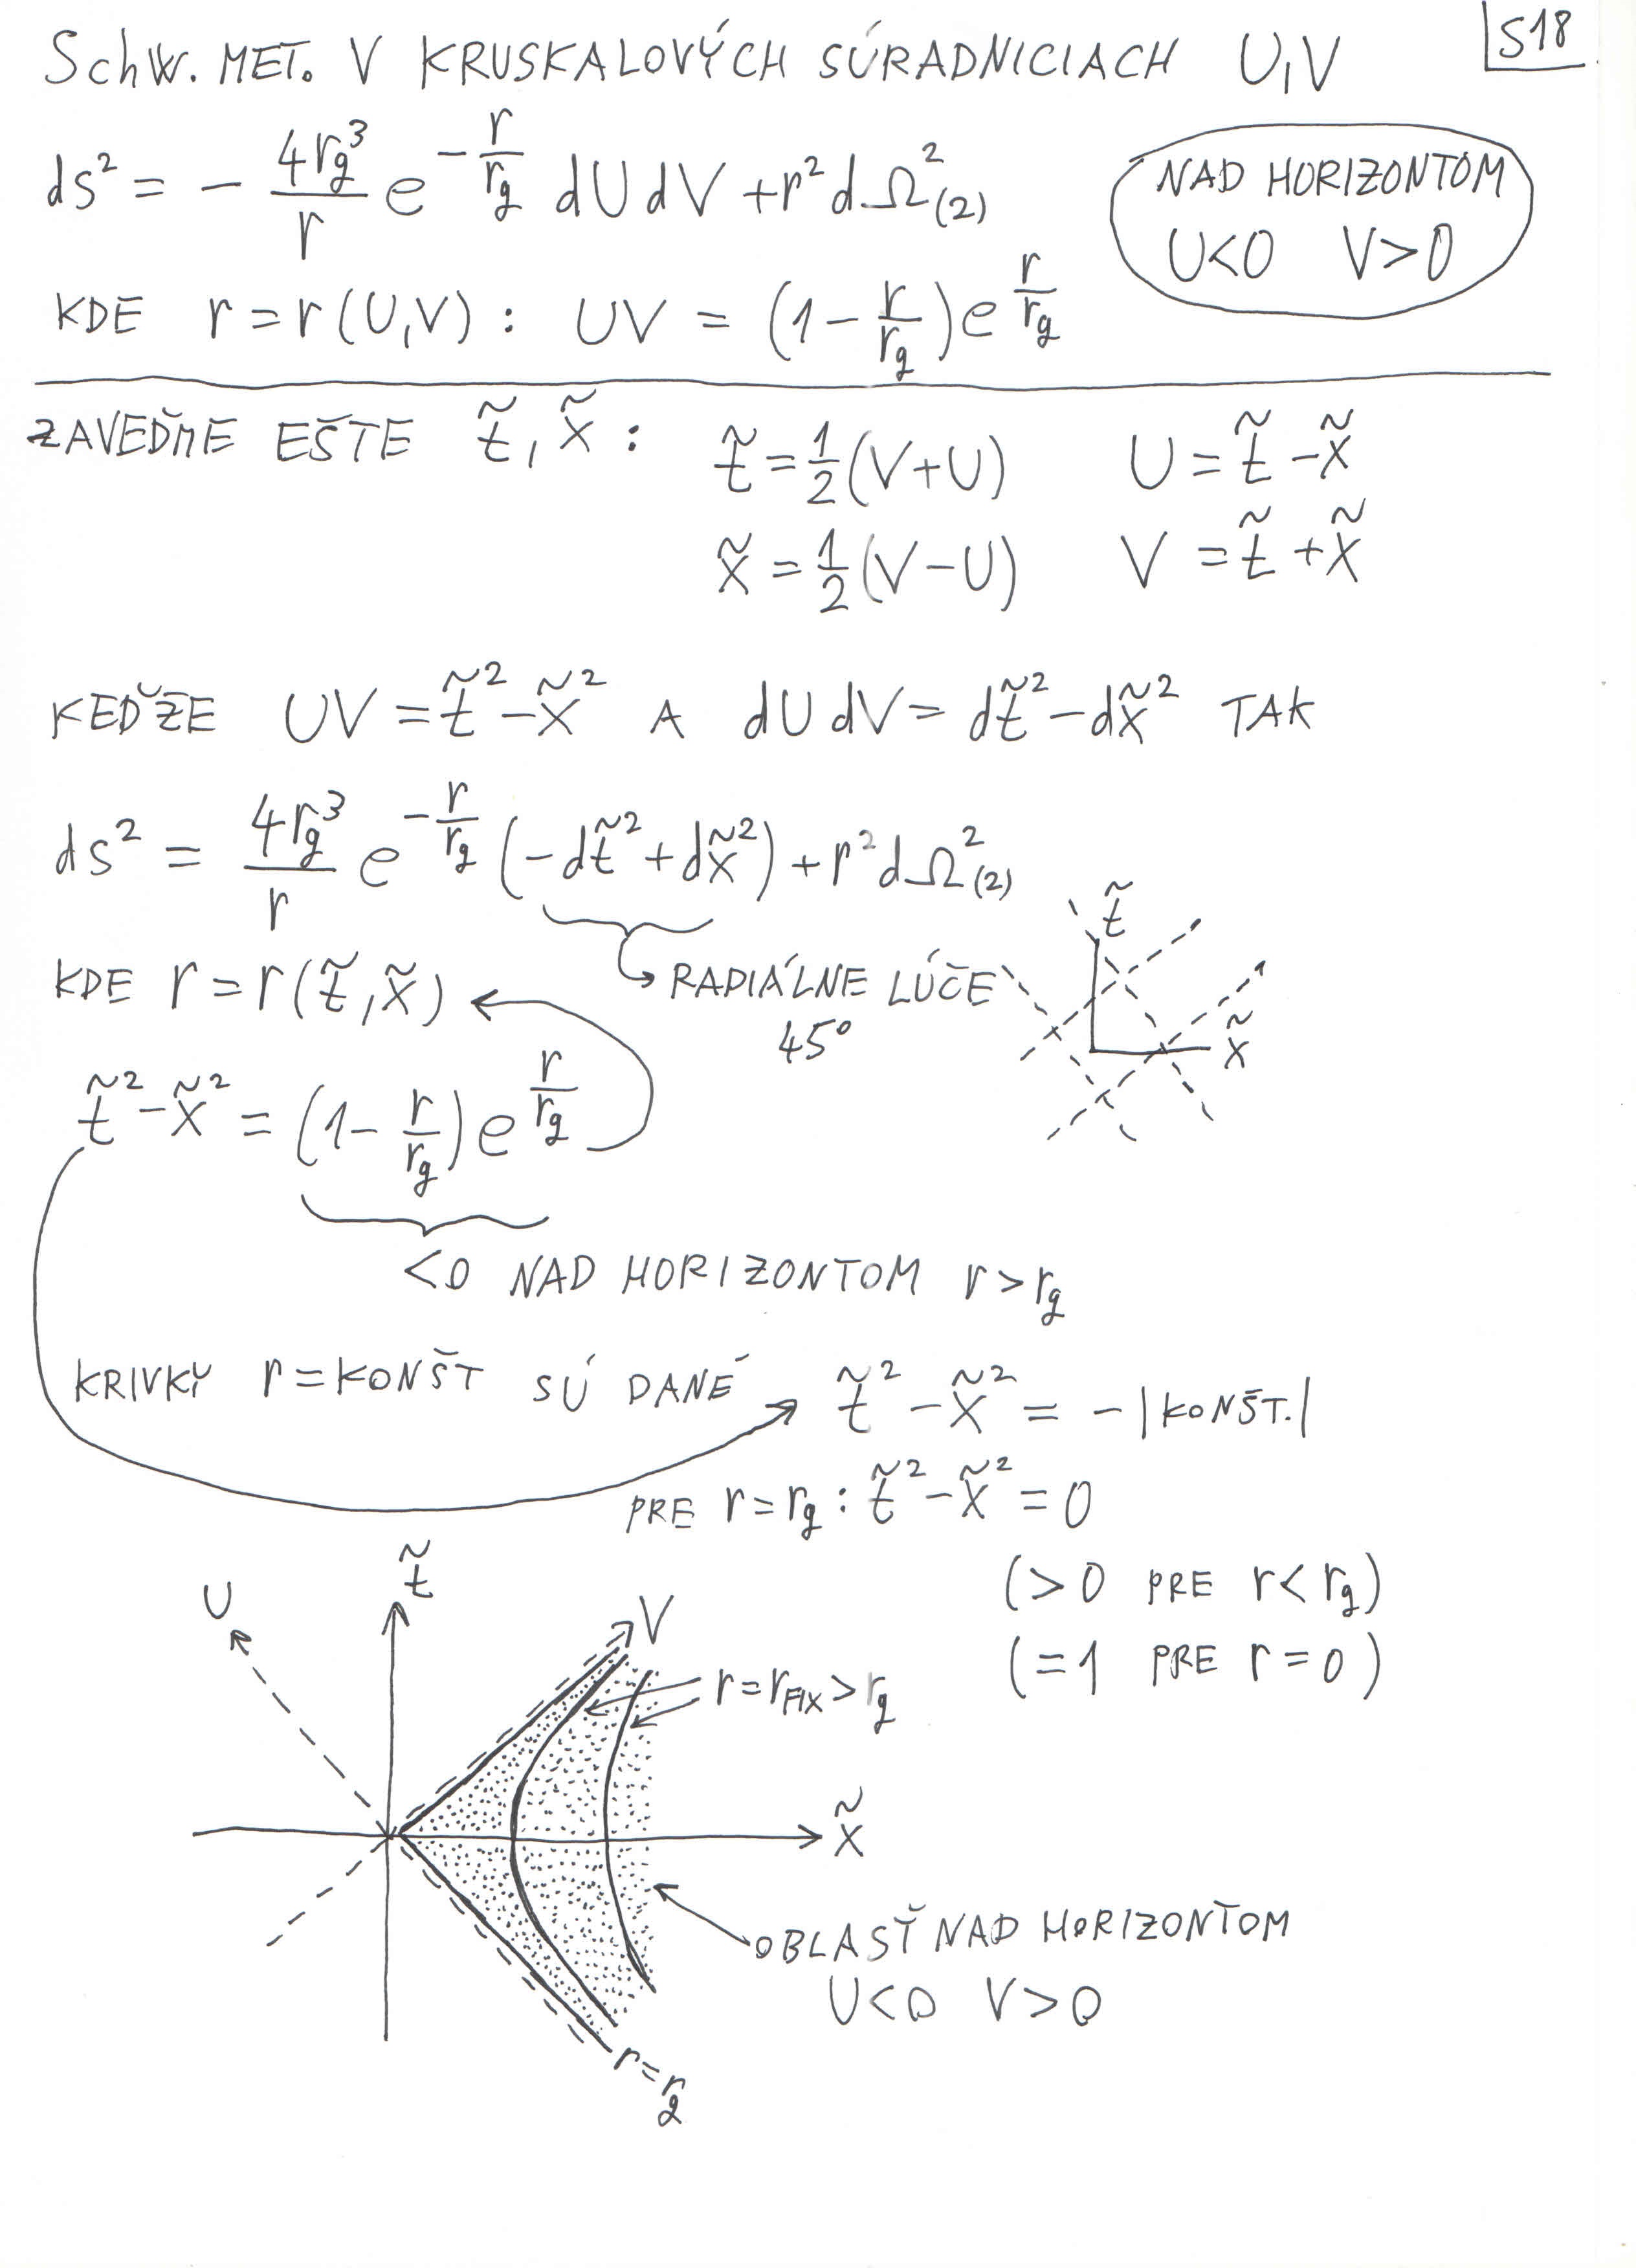 SchW. MET. V KRUSKALOVÝCH SÚRADNICIACH U,V
S18
ds² = - 4rg³/r e^(-r/rg) dUdV + r²dΩ²(2)
NAD HORIZONTOM
U<0 V>0
KDE r = r(U,V) : UV = (1 - r/rg) e^(r/rg)
ZAVEĎME EŠTE t̃, x̃ :
t̃ = 1/2 (V+U) U = t̃ - x̃
x̃ = 1/2 (V-U) V = t̃ + x̃
KEĎŽE UV = t̃² - x̃² A dUdV = dt̃² - dx̃² TAK
ds² = 4rg³/r e^(-r/rg) (-dt̃² + dx̃²) + r²dΩ²(2)
t̃
KDE r = r(t̃,x̃)
RADIÁLNE LÚČE
45°
x̃
t̃² - x̃² = (1 - r/rg) e^(r/rg)
<0 NAD HORIZONTOM r > rg
KRIVKY r = KONŠT SÚ DANÉ t̃² - x̃² = -|KONŠT.|
PRE r = rg : t̃² - x̃² = 0
(>0 PRE r < rg)
(=1 PRE r = 0)
U
t̃
V
r = rFIX > rg
x̃
OBLASŤ NAD HORIZONTOM
U<0 V>0
r = rg